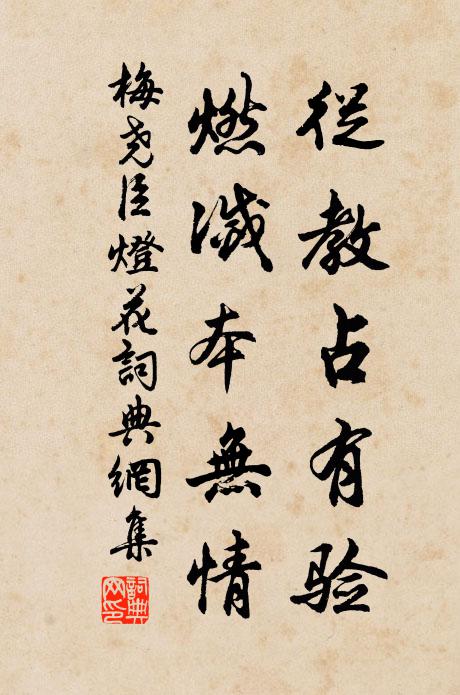 從教占有验
燃滅本無情
梅尧臣燈花詞典網集
詞典網印